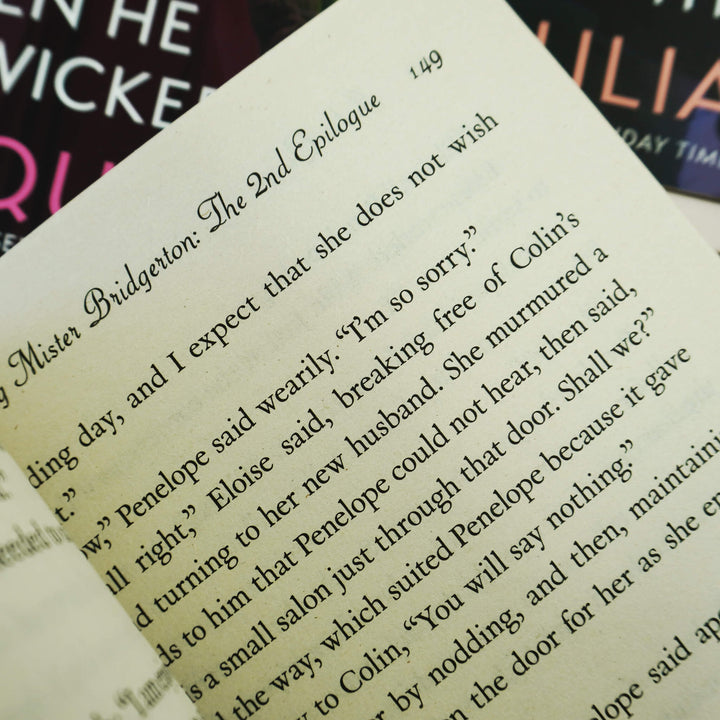 HE
WICKE
QU
ULIA
DAY TIM
149
Mister Bridgerton: The 2nd Epilogue
ding day, and I expect that she does not wish
t.”
ow,” Penelope said wearily. “I’m so sorry.”
all right,” Eloise said, breaking free of Colin’s
d turning to her new husband. She murmured a
ds to him that Penelope could not hear, then said,
is a small salon just through that door. Shall we?”
d the way, which suited Penelope because it gave
y to Colin, “You will say nothing.”
r by nodding, and then, maintaini
n the door for her as she en
elope said ap